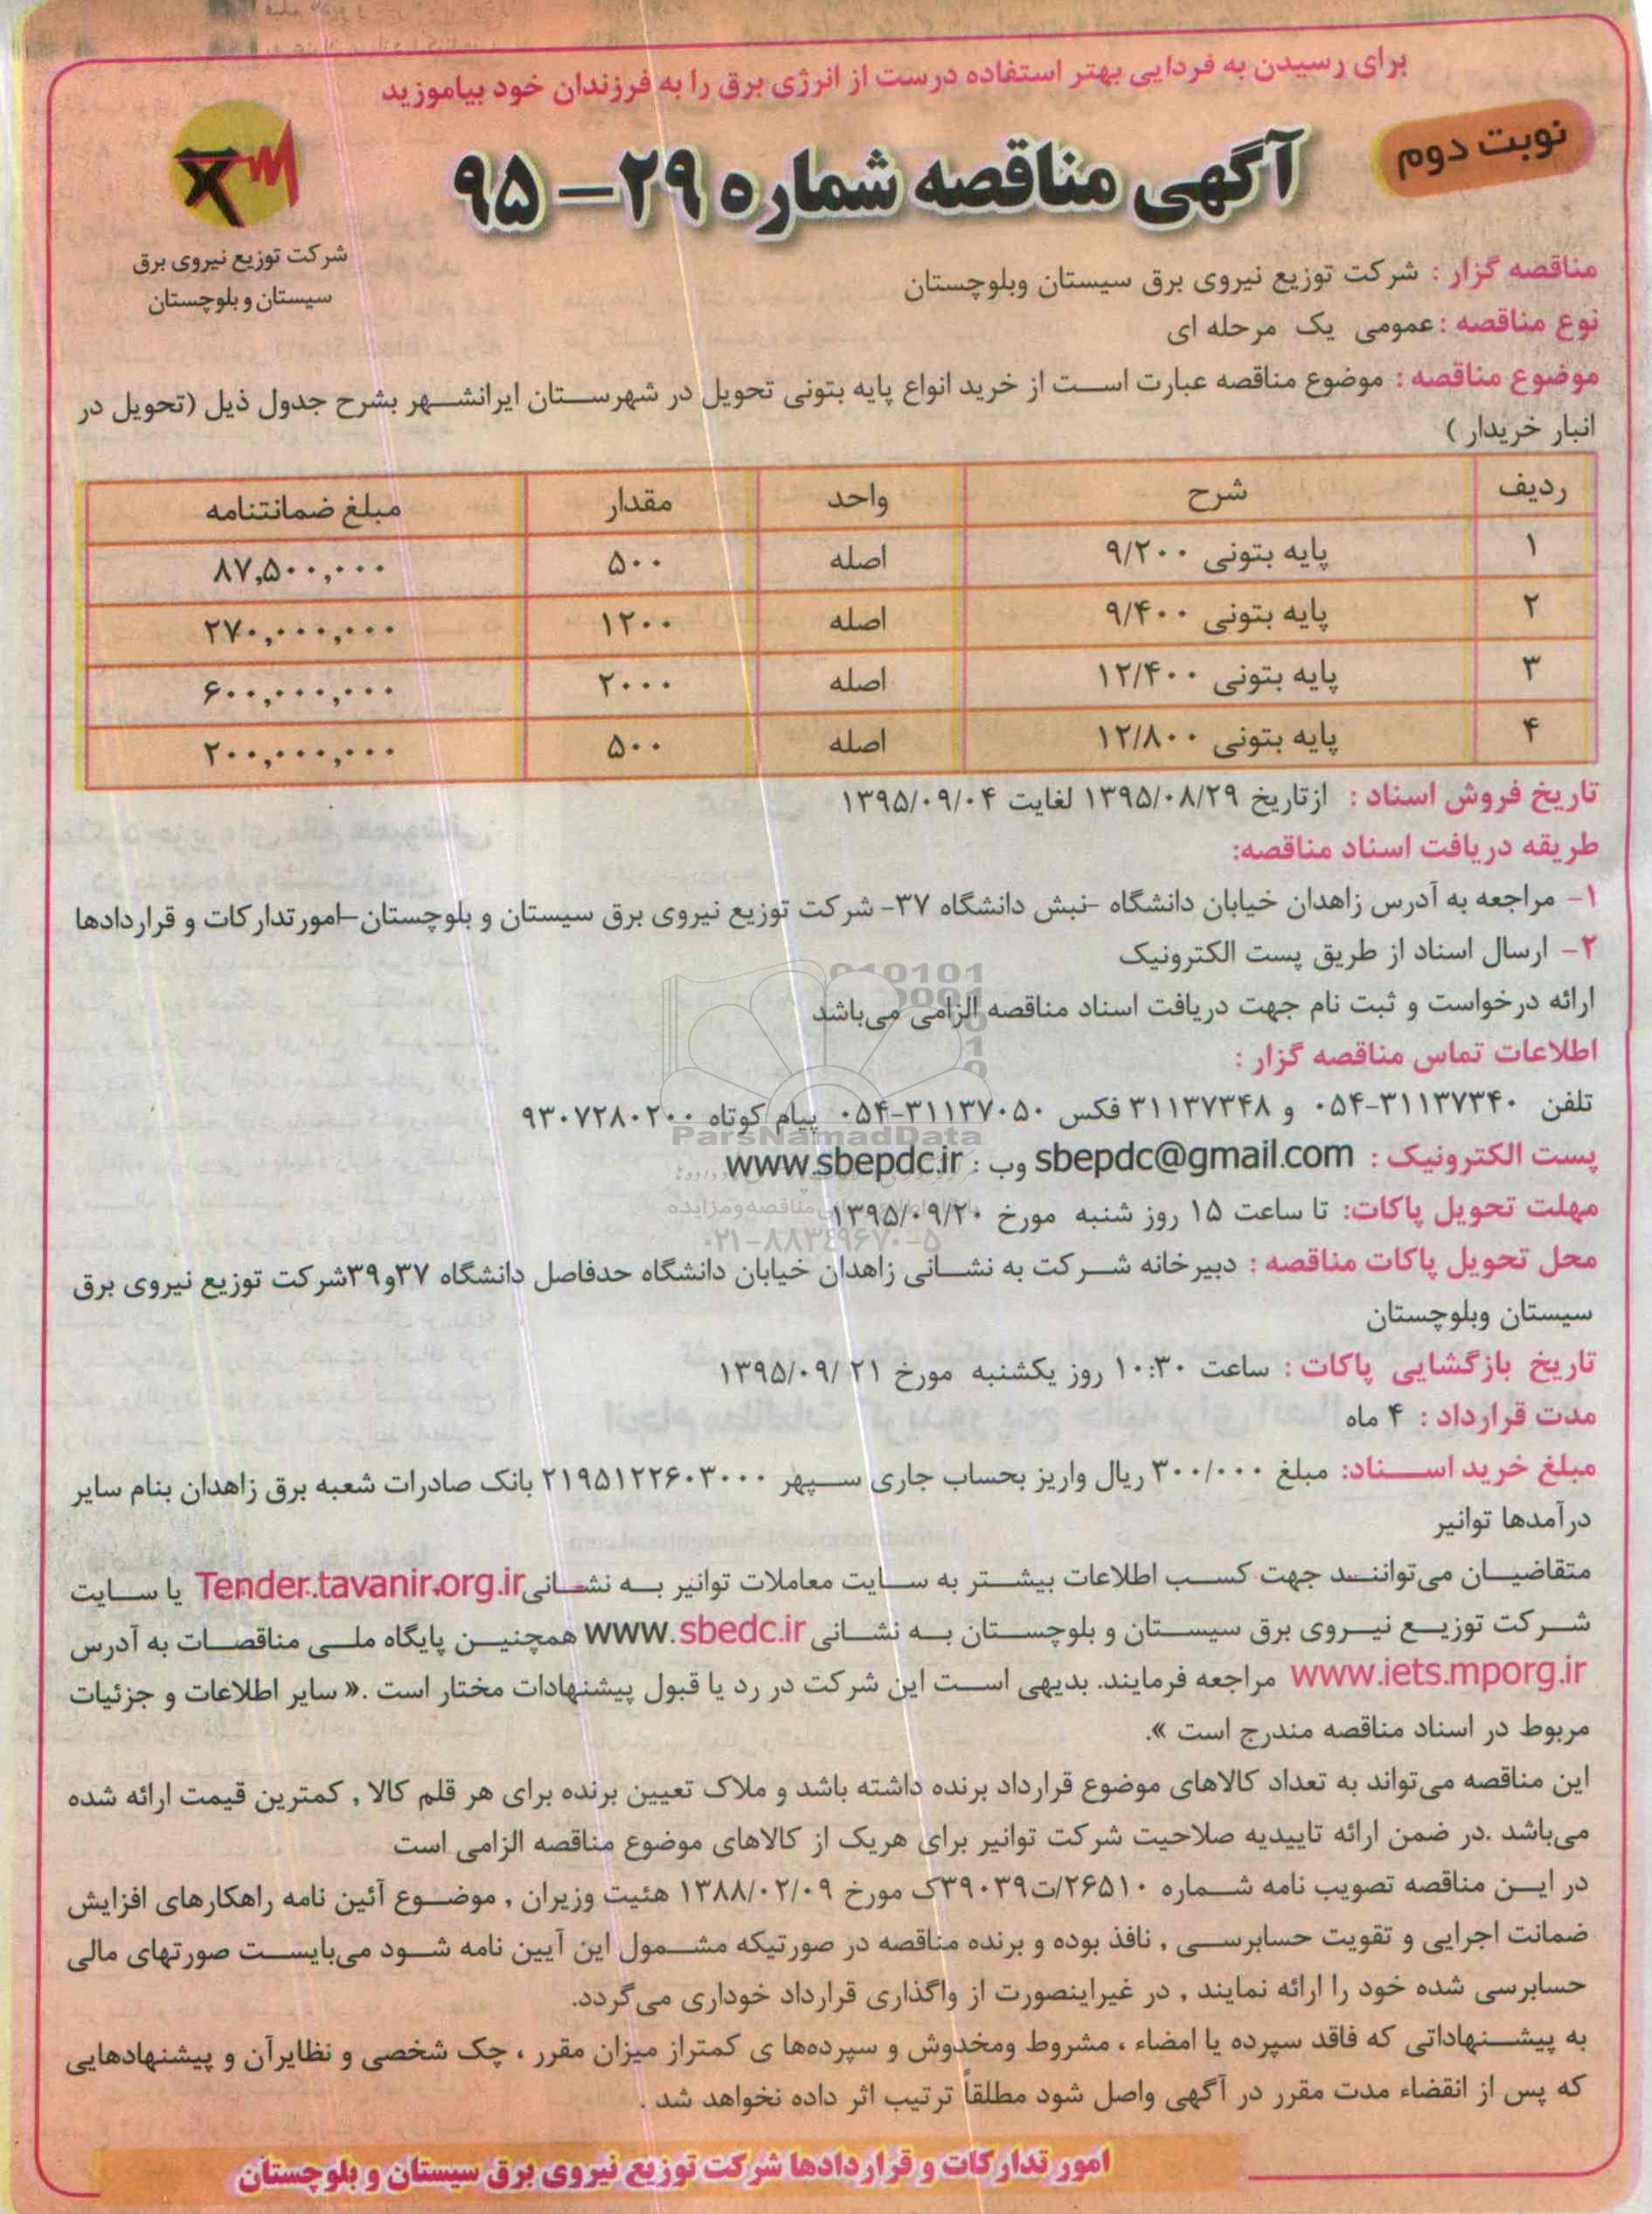 برای رسیدن به فردایی بهتر استفاده درست از انرژی برق را به فرزندان خود بیاموزید
نوبت دوم
آگهی مناقصه شماره ۲۹ – ۹۵
شرکت توزیع نیروی برق
سیستان و بلوچستان
مناقصه گزار : شرکت توزیع نیروی برق سیستان وبلوچستان
نوع مناقصه : عمومی یک مرحله ای
موضوع مناقصه : موضوع مناقصه عبارت است از خرید انواع پایه بتونی تحویل در شهرستان ایرانشهر بشرح جدول ذیل (تحویل در
انبار خریدار )
ردیف شرح واحد مقدار مبلغ ضمانتنامه
۱ پایه بتونی ۹/۲۰۰ اصله ۵۰۰ ۸۷,۵۰۰,۰۰۰
۲ پایه بتونی ۹/۴۰۰ اصله ۱۲۰۰ ۲۷۰,۰۰۰,۰۰۰
۳ پایه بتونی ۱۲/۴۰۰ اصله ۲۰۰۰ ۶۰۰,۰۰۰,۰۰۰
۴ پایه بتونی ۱۲/۸۰۰ اصله ۵۰۰ ۲۰۰,۰۰۰,۰۰۰
تاریخ فروش اسناد : ازتاریخ ۱۳۹۵/۰۸/۲۹ لغایت ۱۳۹۵/۰۹/۰۴
طریقه دریافت اسناد مناقصه:
۱- مراجعه به آدرس زاهدان خیابان دانشگاه -نبش دانشگاه ۳۷- شرکت توزیع نیروی برق سیستان و بلوچستان-امورتدارکات و قراردادها
۲- ارسال اسناد از طریق پست الکترونیک
ارائه درخواست و ثبت نام جهت دریافت اسناد مناقصه الزامی می‌باشد
اطلاعات تماس مناقصه گزار :
تلفن ۳۱۱۳۷۳۴۰-۰۵۴ و ۳۱۱۳۷۳۴۸ فکس ۳۱۱۳۷۰۵۰-۰۵۴ پیام کوتاه ۹۳۰۷۲۸۰۲۰۰
ParsNamadData
پست الکترونیک : sbepdc@gmail.com وب : www.sbepdc.ir
مهلت تحویل پاکات: تا ساعت ۱۵ روز شنبه مورخ ۱۳۹۵/۰۹/۲۰
۰۲۱-۸۸۳۴۹۶۷۰-۵
محل تحویل پاکات مناقصه : دبیرخانه شرکت به نشانی زاهدان خیابان دانشگاه حدفاصل دانشگاه ۳۷و۳۹شرکت توزیع نیروی برق
سیستان وبلوچستان
تاریخ بازگشایی پاکات : ساعت ۱۰:۳۰ روز یکشنبه مورخ ۲۱ /۱۳۹۵/۰۹
مدت قرارداد : ۴ ماه
مبلغ خرید اسناد: مبلغ ۳۰۰/۰۰۰ ریال واریز بحساب جاری سپهر ۲۱۹۵۱۲۲۶۰۳۰۰۰ بانک صادرات شعبه برق زاهدان بنام سایر
درآمدها توانیر
متقاضیان می‌توانند جهت کسب اطلاعات بیشتر به سایت معاملات توانیر به نشانی Tender.tavanir.org.ir یا سایت
شرکت توزیع نیروی برق سیستان و بلوچستان به نشانی www.sbedc.ir همچنین پایگاه ملی مناقصات به آدرس
www.iets.mporg.ir مراجعه فرمایند. بدیهی است این شرکت در رد یا قبول پیشنهادات مختار است .« سایر اطلاعات و جزئیات
مربوط در اسناد مناقصه مندرج است ».
این مناقصه می‌تواند به تعداد کالاهای موضوع قرارداد برنده داشته باشد و ملاک تعیین برنده برای هر قلم کالا , کمترین قیمت ارائه شده
می‌باشد .در ضمن ارائه تاییدیه صلاحیت شرکت توانیر برای هریک از کالاهای موضوع مناقصه الزامی است
در این مناقصه تصویب نامه شماره ۲۶۵۱۰/ت۳۹۰۳۹ک مورخ ۱۳۸۸/۰۲/۰۹ هئیت وزیران , موضوع آئین نامه راهکارهای افزایش
ضمانت اجرایی و تقویت حسابرسی , نافذ بوده و برنده مناقصه در صورتیکه مشمول این آیین نامه شود می‌بایست صورتهای مالی
حسابرسی شده خود را ارائه نمایند , در غیراینصورت از واگذاری قرارداد خوداری می‌گردد.
به پیشنهاداتی که فاقد سپرده یا امضاء ، مشروط ومخدوش و سپرده‌ها ی کمتراز میزان مقرر ، چک شخصی و نظایرآن و پیشنهادهایی
که پس از انقضاء مدت مقرر در آگهی واصل شود مطلقاً ترتیب اثر داده نخواهد شد .
امور تدارکات و قراردادها شرکت توزیع نیروی برق سیستان و بلوچستان